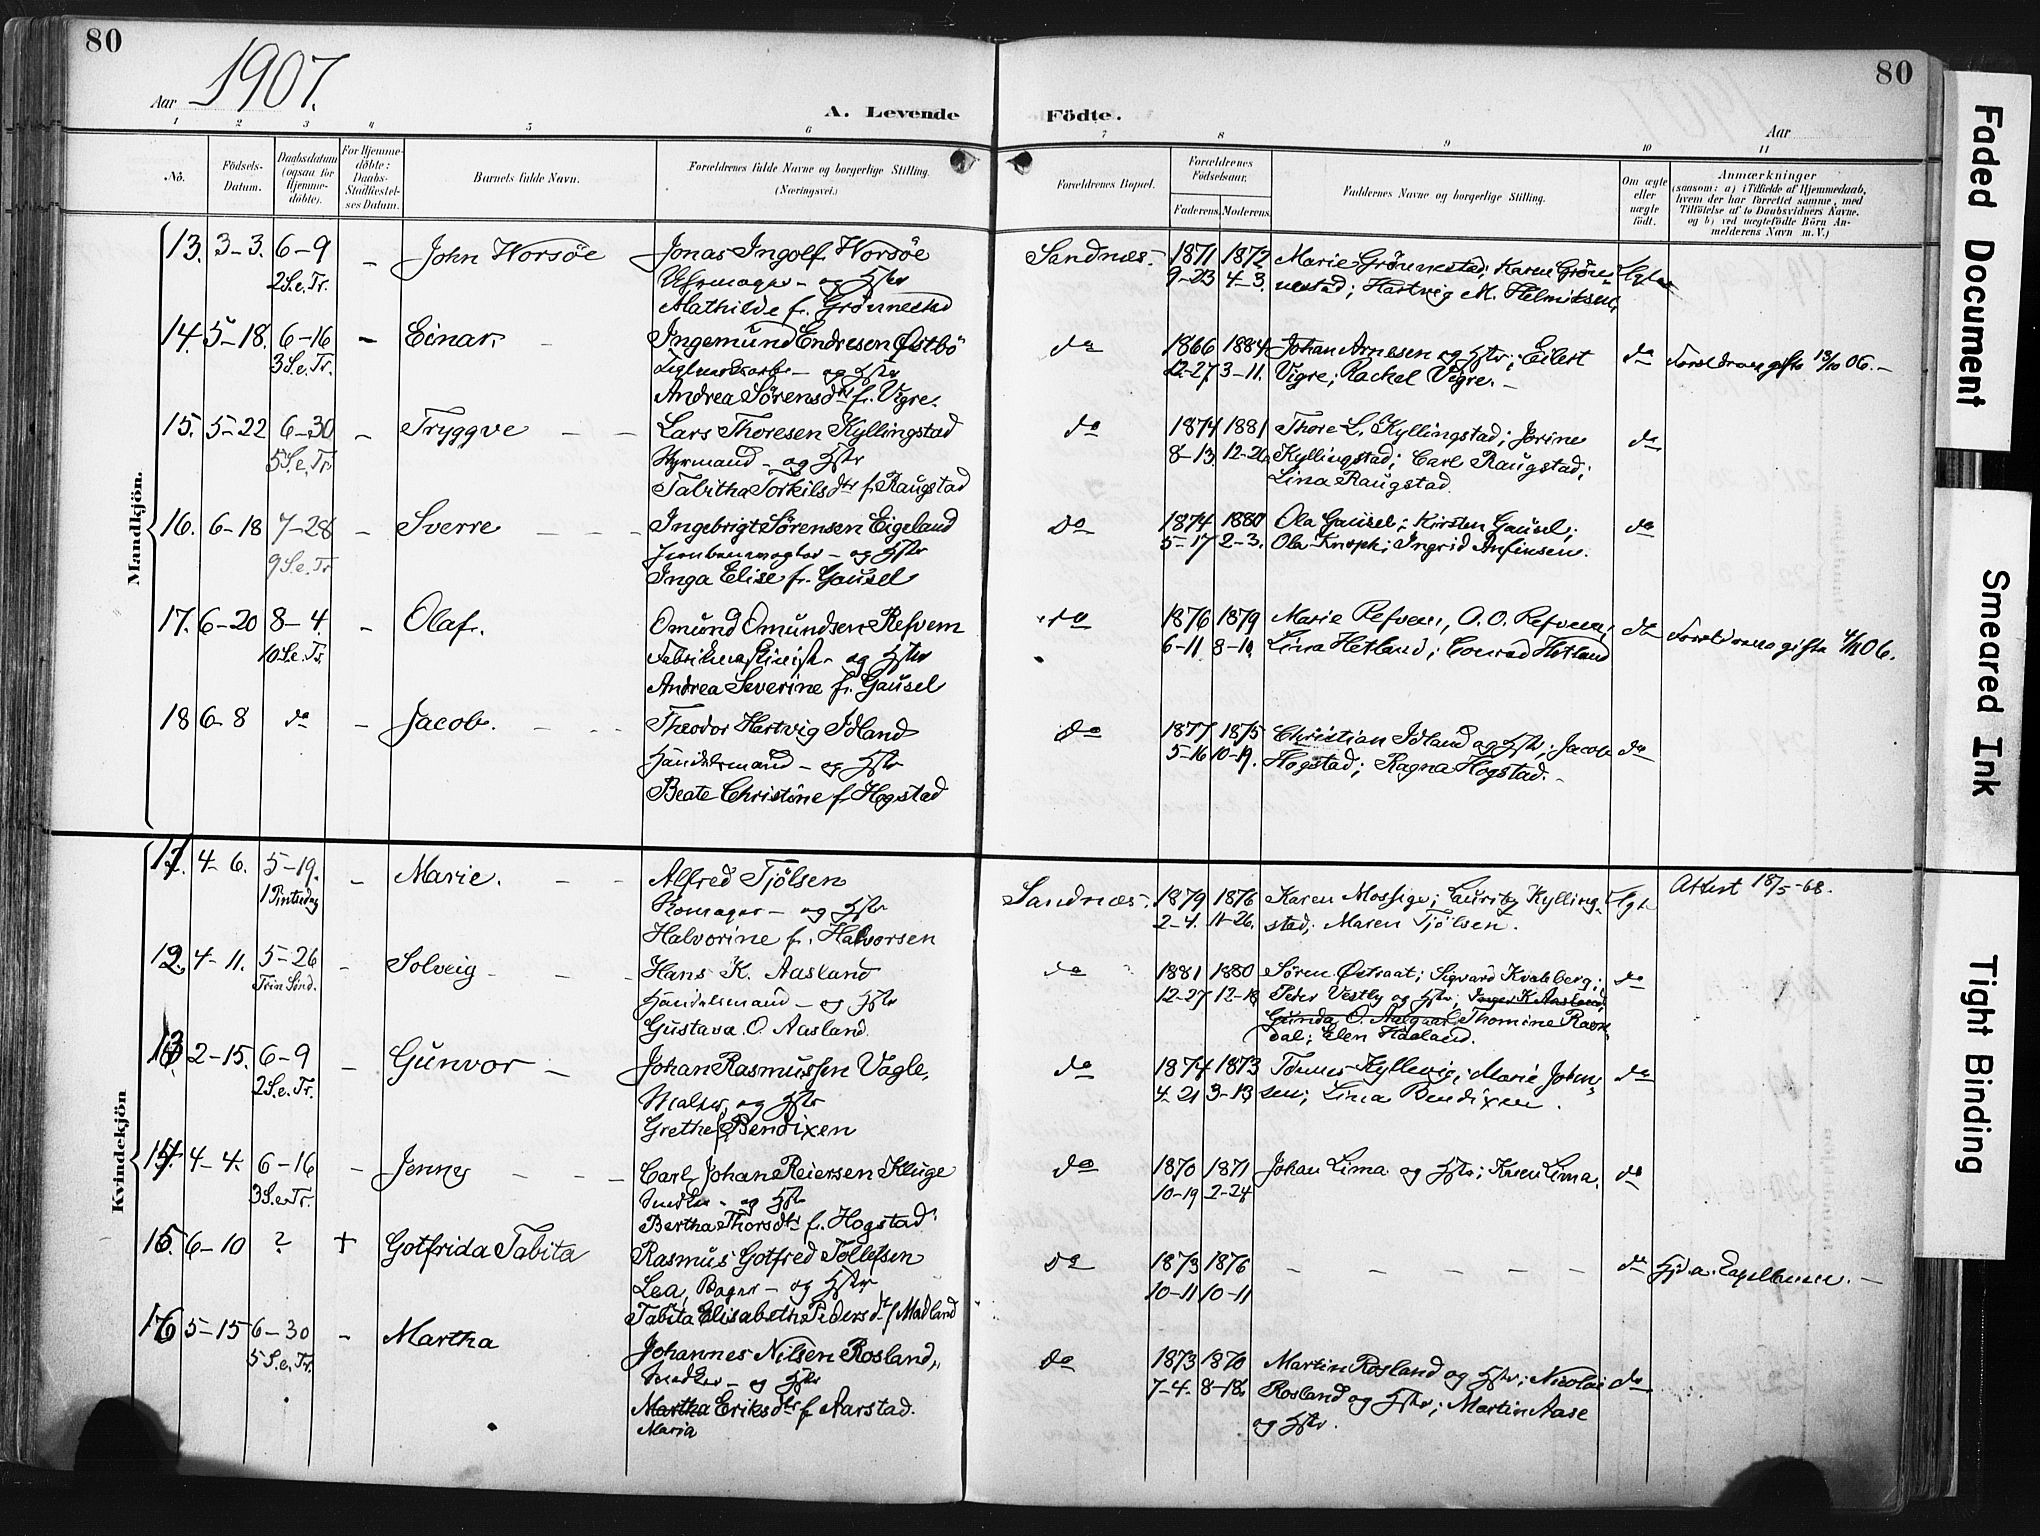 80
1907.
Aar
A. Levende
Födte.
Aar
80
1 2 3 4 5 6 7 8 9 10 11
No.
Födsels-Datum.
Daabsdatum (ogsaa for Hjemme-döbte).
For Hjemme-döbte: Daabs-Stadfæstel-ses Datum.
Barnets fulde Navn.
Forældrenes fulde Navne og borgerlige Stilling. (Næringsvei.)
Forældrenes Bopæl.
Forældrenes Födselsaar.
Faderens. Moderens.
Faddernes Navne og borgerlige Stilling.
Om ægte eller uægte födt.
Anmærkninger
(saasom: a) i Tilfælde af Hjemmedaab, hvem der har forrettet samme, med Tilföielse af to Daabsvidners Navne. og b) ved uægtefödte Börn Anmelderens Navn m. V.)
Mandkjön.
13. 3-3. 6-9 - John Horsöe Jonas Ingolf Horsöe Sandnes. 1871 1872 Marie Grönnestad; Karen Grön-
2 S.e.Tr. og Hstr 9-23 4-3. nestad; Hartvig M. Helmiksen,
Mathilde f. Grönnestad
14. 5-18. 6-16 - Einar. Ingemund Endresen Østbö do 1866 1884 Johan Arnesen og Hstr; Eilert do Foreldrene gifte 13/10 06.-
3 S.e.Tr. og Hstr 12-27 3-11. Vigre; Rachel Vigre.-
Andrea Sørensdtr f. Vigre.
15. 5-22 6-30 - Tryggve - - Lars Thoresen Kyllingstad do 1874 1881 Thore L. Kyllingstad; Jorine do
5 S.e.Tr. Styrmand - og Hstr 8-13. 12-26 Kyllingstad; Carl Raugstad;
Tabitha Torkilsdtr f. Raugstad Lina Raugstad.
16. 6-18 7-28 - Sverre - - - Ingebrigt Sørensen Eigeland do 1874 1880 Ola Gausel; Kirsten Gausel; do
9 S.e.Tr og Hstr 5-17 2-3. Ola Knoph; Ingrid Anfinsen.
Inga Elise f. Gausel
17. 6-20 8-4. - Olaf. Omund Omundsen Refvem do 1876 1879 Marie Refvem, O. O. Refvem, do Foreldrene gifte 06.
10 S.e.Tr. og Hstr 6-11 8-10. Lina Hetland; Conrad Hetland
Andrea Severine f. Gausel
18 6-8 do - Jacob. - - - Theodor Hartvig Idland do 1877 1875 Christian Idland og Hstr; Jacob do
Handelsmand - og Hstr 5-16 10-19. Hogstad; Ragna Hogstad.-
Beate Christine f. Hogstad
Kvindekjön
11. 4-6. 5-19. - Marie. - - Alfred Tjölsen Sandnes. 1879 1876 Karen Mossige; Lauritz Kylling- Attest 18/5-68.
1 Pintsedag Skomager - og Hstr 2-4. 11-26. stad; Maren Tjölsen.
Halvorine f. Halvorsen
12. 4-11. 5-26 - Solveig - - - Hans K. Aasland do 1881 1880 Sören Østraat; Sigvard Kvalsberg; do
Trin Sönd. Handelsmand - og Hstr 12-27 12-18 Peder Vestly og Hstr; Inger K Aasland,
Gustava O. Aasland. Gunda O. Aasgaard, Thomine Ravn-
dal; Elen Haaland.
13 2-15. 6-9 - Gunvor - Johan Rasmussen Vagle, do 1874 1873 Tönnes Kyllevig; Marie Johan- do
2 S.e.Tr. Maler, og Hstr 4-21 3-13 sen; Lina Bendixen.
Grethe f. Bendixen
14. 4-4. 6-16 - Jenny - - - Carl Johan Reiersen Kluge do 1870 1871 Johan Lima og Hstr; Karen Lima. do
3 S.e.Tr. Snedker - og Hstr 10-19 2-24
Bertha Thorsdtr f. Hogstad
15. 6-10 ? + Gotfrida Tabita Rasmus Gotfred Tollefsen do 1873 1876 - - - - - do
Lea, Bager - og Hstr 10-11 10-11
Tabita Elisabeth Pedersdtr f. Madland
16 5-15 6-30 - Martha Johannes Nilsen Rosland, do 1873 1870 Martin Rosland og Hstr; Nicolai do
5 S.e.Tr. Snedker - og Hstr 7-4. 8-18. Rosland og Hstr; Martin Aase
Martha Eriksdtr f. Aarstad. og Hstr.
Maria
Faded Document
Smeared Ink
Tight Binding